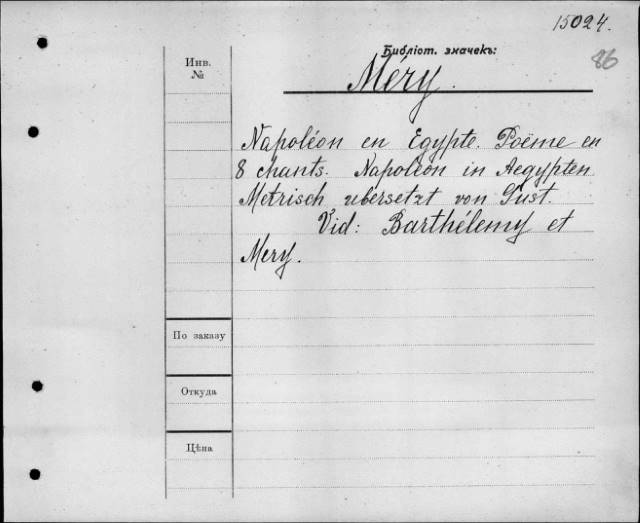 15024.
Библіот. значекъ:
86
Инв.
№
Méry.
Napoléon en Egypte. Poëme en
8 chants. Napoléon in Aegypten
Metrisch übersetzt von Gust.
Vid: Barthélemy et
Mery.
По заказу
Откуда
Цѣна